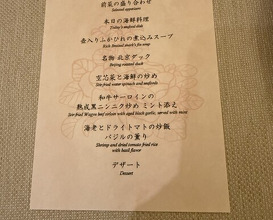 前菜の盛り合わせ
Selected appetizers
本日の海鮮料理
Today's seafood dish
壺入りふかひれの煮込みスープ
Rich Braised shark's fin soup
名物 北京ダック
Beijing roasted duck
空芯菜と海鮮の炒め
Stir-fried water spinach and seafoods
和牛サーロインの
熟成黒ニンニク炒め ミント添え
Stir-fried Wagyu beef sirloin with aged black garlic, served with mint
海老とドライトマトの炒飯
バジルの薫り
Shrimp and dried tomato fried rice
with basil flavor
デザート
Dessert